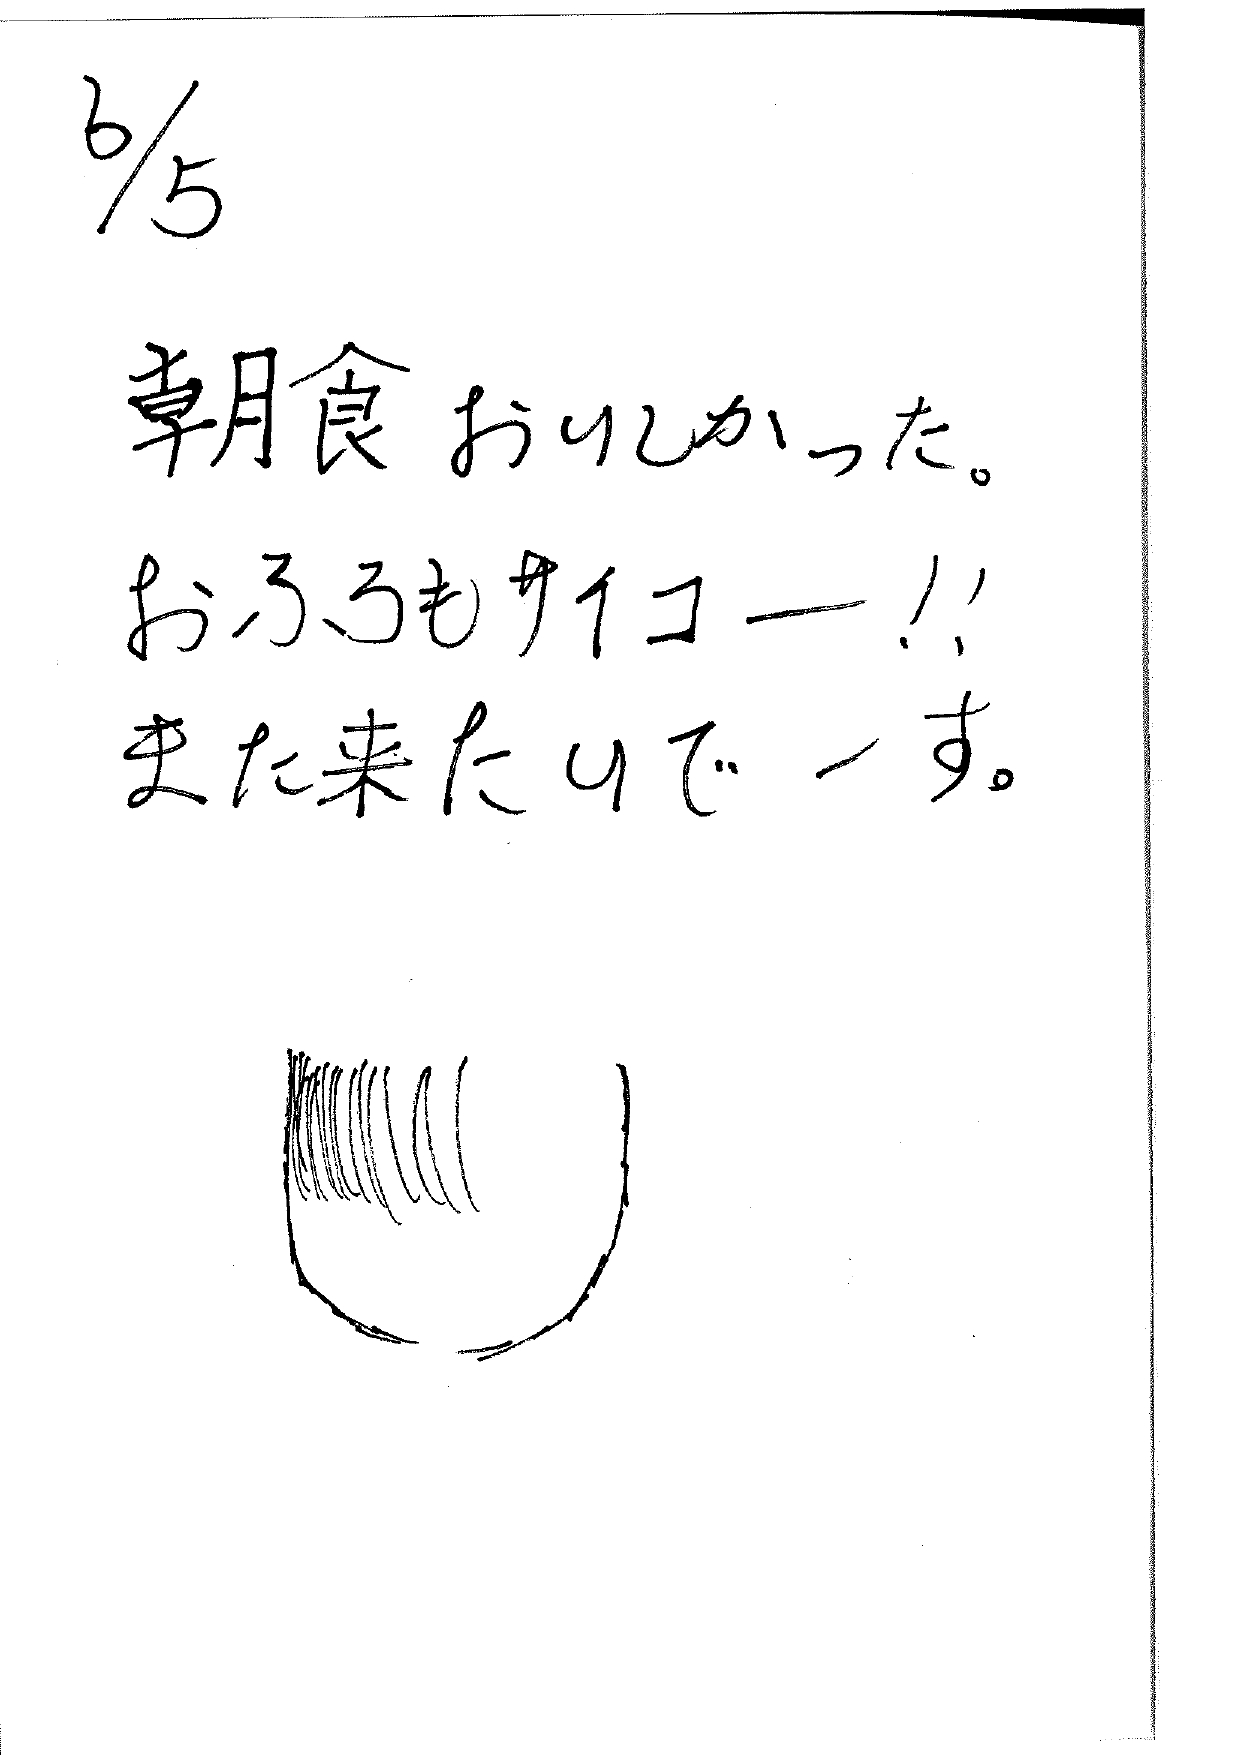 6/5
朝食おいしかった。
おふろもサイコー!!
また来たいでーす。